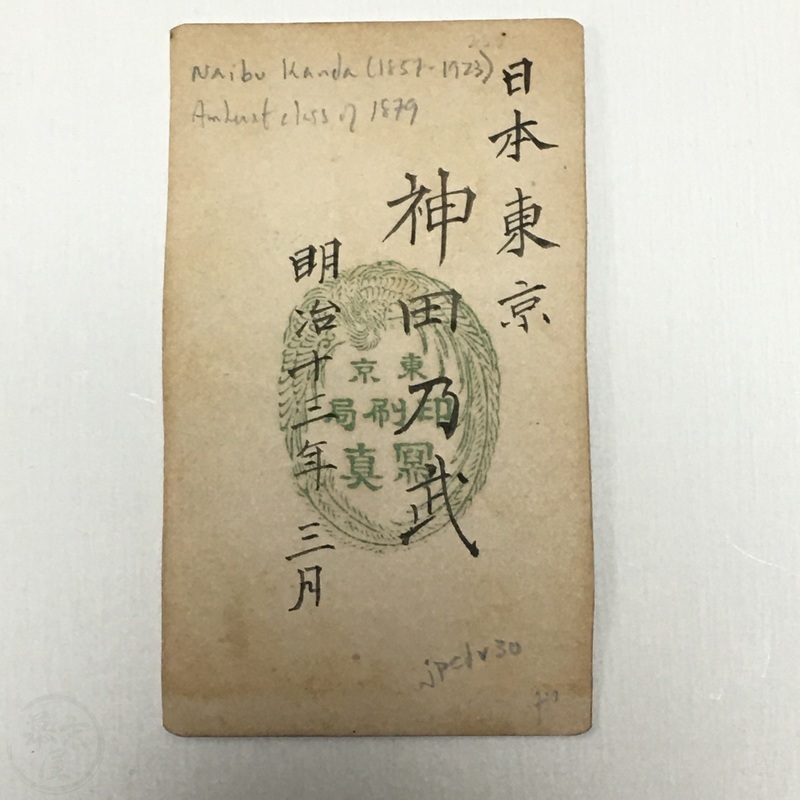 Naibu Kanda (1857-1923)
Amherst class of 1879
日本東京
神田乃武
明治十三年 三月
東京
印刷局
冩真
jpcdv30